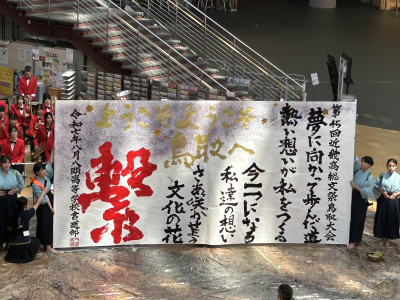 第45回近畿高総文祭鳥取大会
夢に向かって歩んだ道
熱い想いが私をつくる
今一つになる
私達の想い
さあ咲かせよう
文化の花
ようこそようこそ
鳥取へ
繋
令和七年八月八頭高等学校書道部